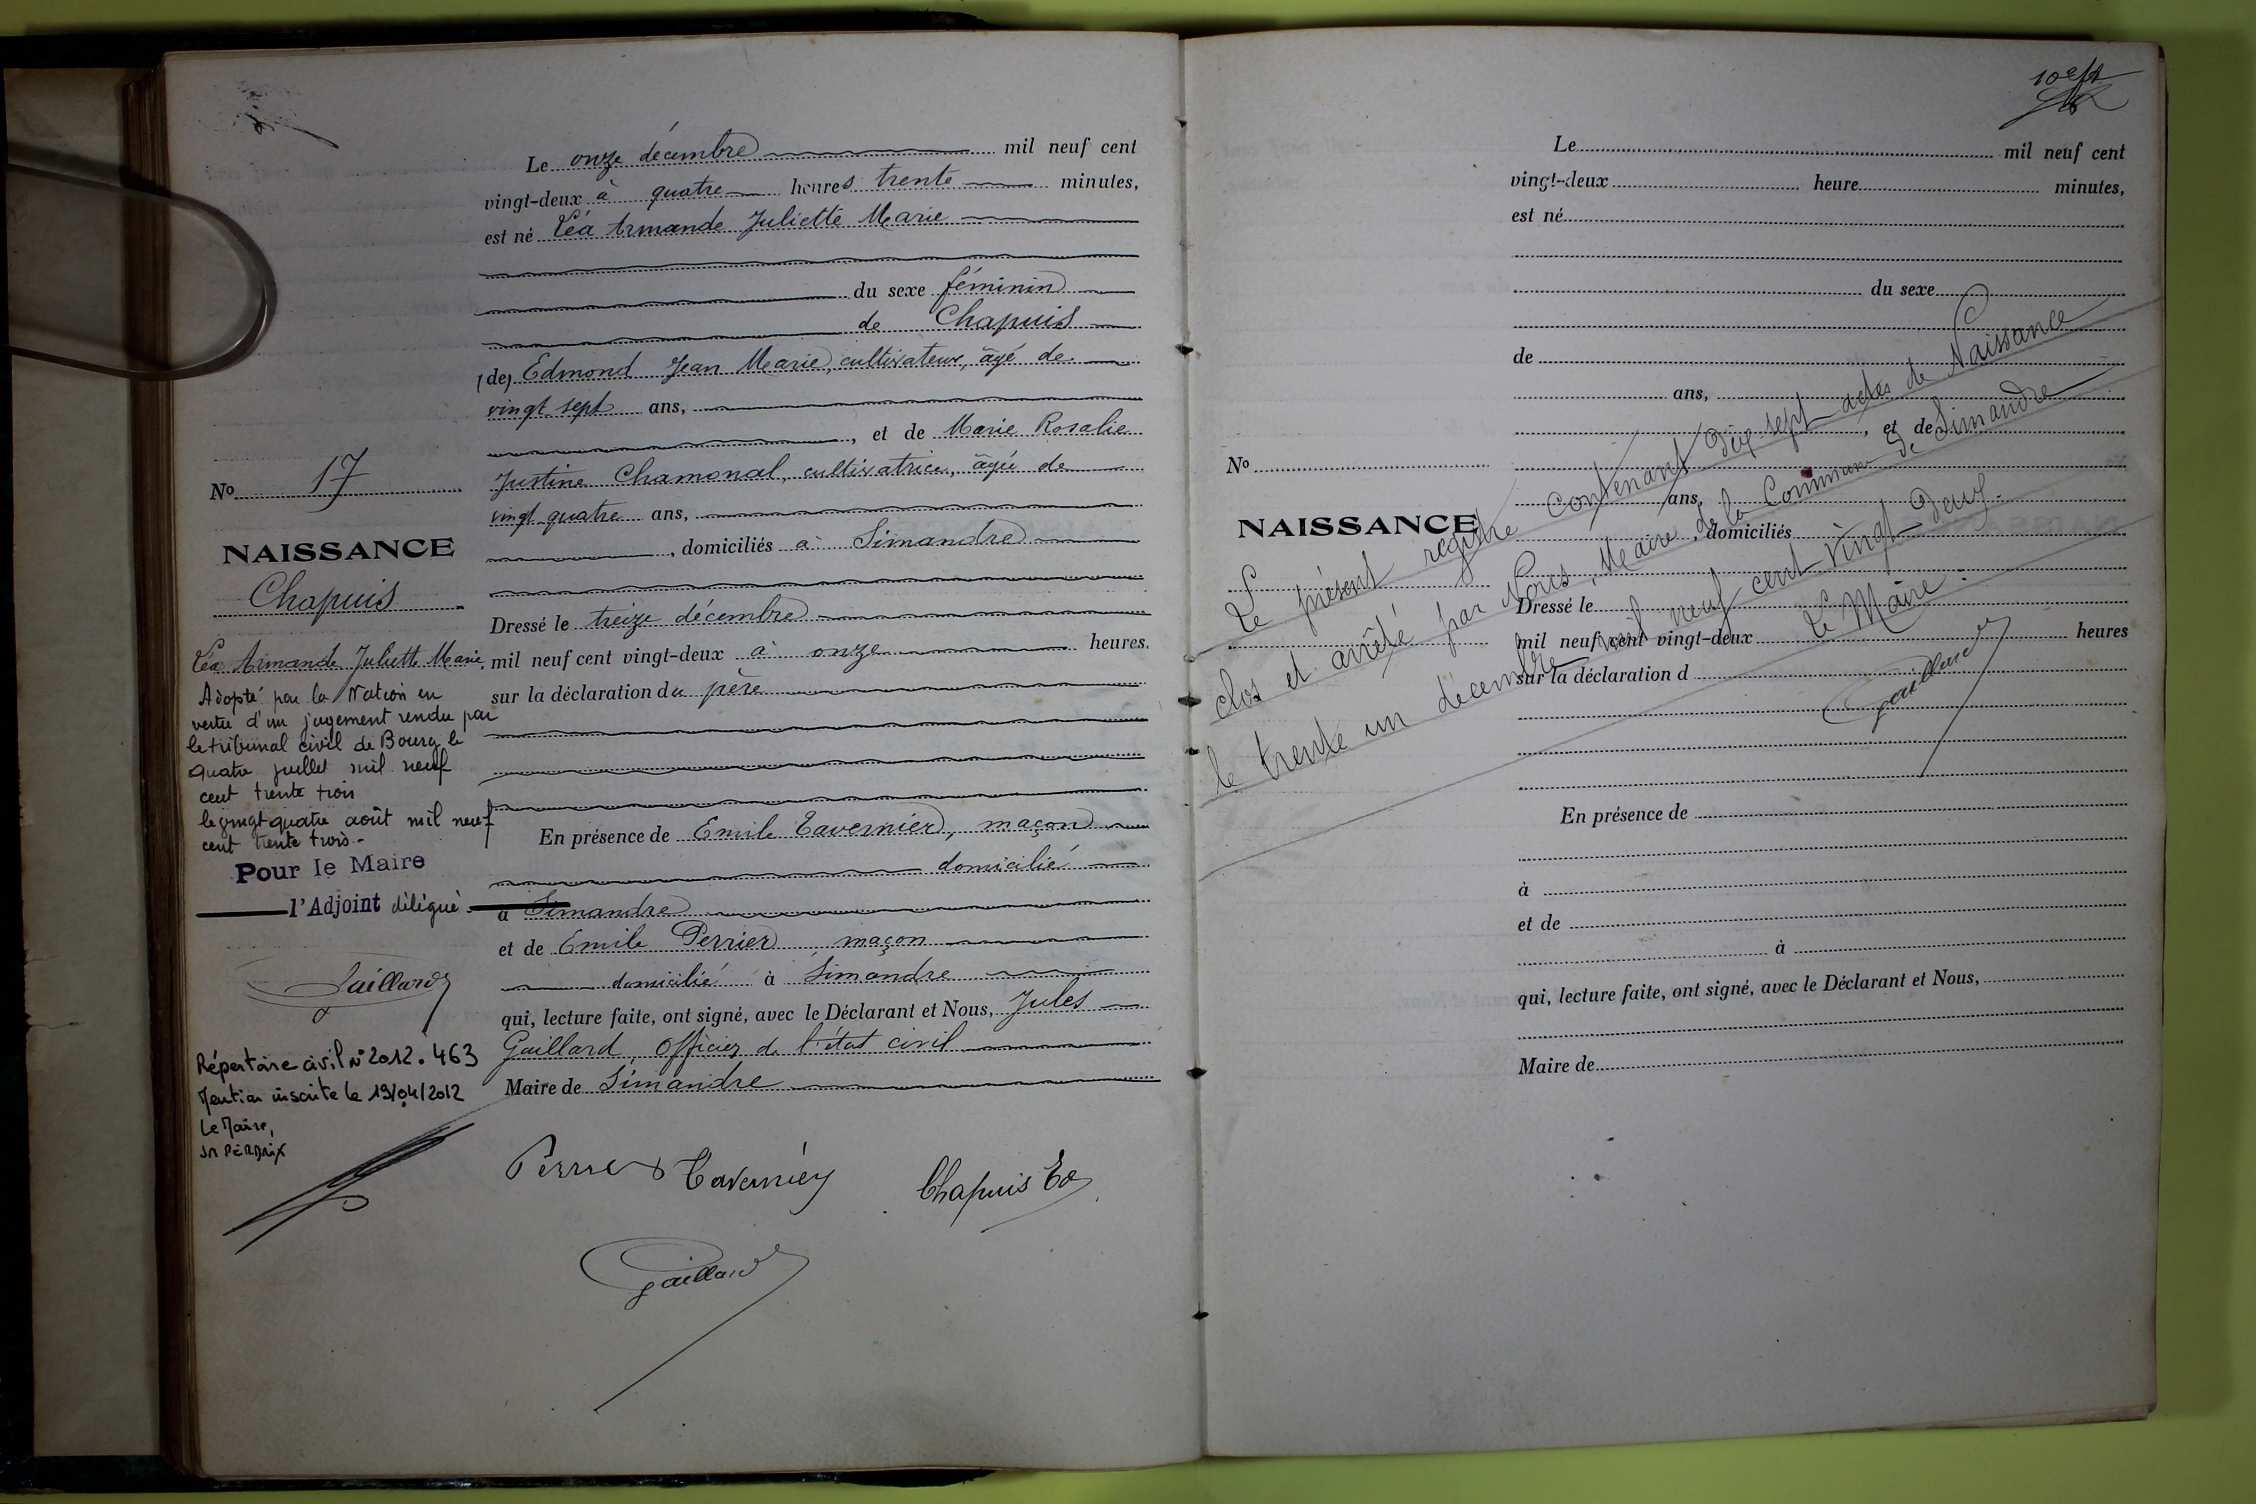 Le onze décembre mil neuf cent
vingt-deux à quatre heures trente minutes,
est né Léa Armande Juliette Marie
du sexe féminin
de Chapuis
(de) Edmond Jean Marie, cultivateur, âgé de
vingt sept ans,
, et de Marie Rosalie
Justine Chamonal, cultivatrice, âgée de
vingt quatre ans,
, domiciliés à Simandre
Dressé le treize décembre
mil neuf cent vingt-deux à onze heures.
sur la déclaration du père
En présence de Emile Tavernier, maçon
domicilié
à Simandre
et de Emile Perrier maçon
domicilié à Simandre
qui, lecture faite, ont signé, avec le Déclarant et Nous, Jules
Gaillard, officier de l'état civil
Maire de Simandre
Perrier Tavernier Chapuis Ed
Gaillard
No 17
NAISSANCE
Chapuis
Léa Armande Juliette Marie.
Adopté par la Nation en
vertu d'un jugement rendu par
le tribunal civil de Bourg le
quatre juillet mil neuf
cent trente trois
le vingt-quatre août mil neuf
cent trente trois.-
Pour le Maire
l'Adjoint délégué
Gaillard
Répertoire civil N° 2012.463
Mention inscrite le 19/04/2012
Le Maire,
JM PERDRIX
Le mil neuf cent
vingt-deux heure minutes,
est né
du sexe
de
ans,
, et de
ans,
, domiciliés
No
NAISSANCE
Dressé le
mil neuf cent vingt-deux heures
sur la déclaration d
En présence de
à
et de
à
qui, lecture faite, ont signé, avec le Déclarant et Nous,
Maire de
Le présent registre contenant dix-sept actes de Naissance
clos et arrêté par Nous, Maire de la Commune de Simandre
le trente un décembre mil neuf cent vingt-deux.
Le Maire.
Gaillard